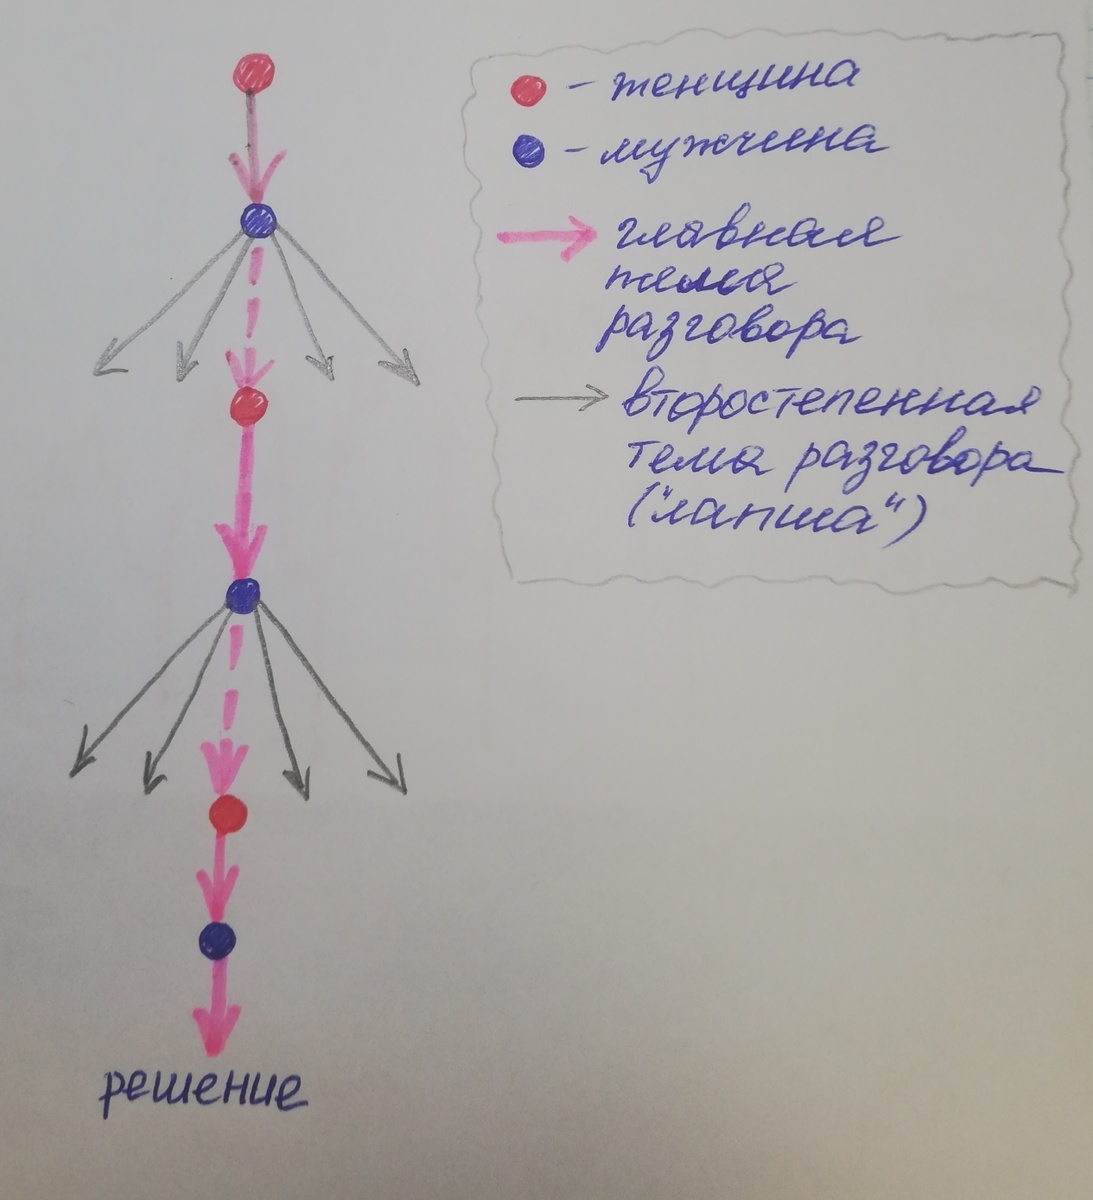 – женщина
– мужчина
главная
тема
разговора
второстепенная
тема разговора
("лапша")
решение